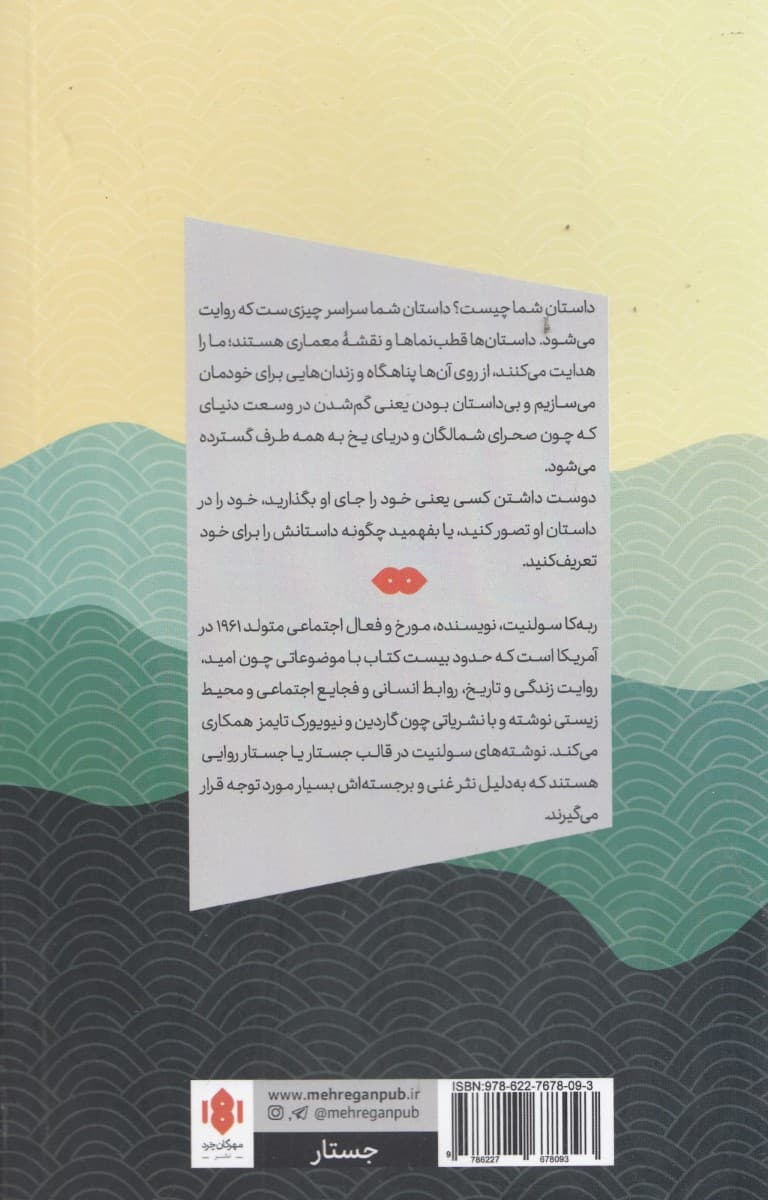 داستان شما چیست؟ داستان شما سراسر چیزی‌ست که روایت
می‌شود. داستان‌ها قطب‌نماها و نقشهٔ معماری هستند؛ ما را
هدایت می‌کنند، از روی آن‌ها پناهگاه و زندان‌هایی برای خودمان
می‌سازیم و بی‌داستان بودن یعنی گم‌شدن در وسعت دنیای
که چون صحرای شمالگان و دریای یخ به همه طرف گسترده
می‌شود.
دوست داشتن کسی یعنی خود را جای او بگذارید، خود را در
داستان او تصور کنید، یا بفهمید چگونه داستانش را برای خود
تعریف‌کنید.
ربه‌کا سولنیت، نویسنده، مورخ و فعال اجتماعی متولد ۱۹۶۱ در
آمریکا است که حدود بیست کتاب با موضوعاتی چون امید،
روایت زندگی و تاریخ، روابط انسانی و فجایع اجتماعی و محیط
زیستی نوشته و با نشریاتی چون گاردین و نیویورک تایمز همکاری
می‌کند. نوشته‌های سولنیت در قالب جستار یا جستار روایی
هستند که به‌دلیل نثر غنی و برجسته‌اش بسیار مورد توجه قرار
می‌گیرند.
مهرگان خرد
نشر
www.mehreganpub.ir
@mehreganpub
جستار
ISBN:978-622-7678-09-3
9 786227 678093